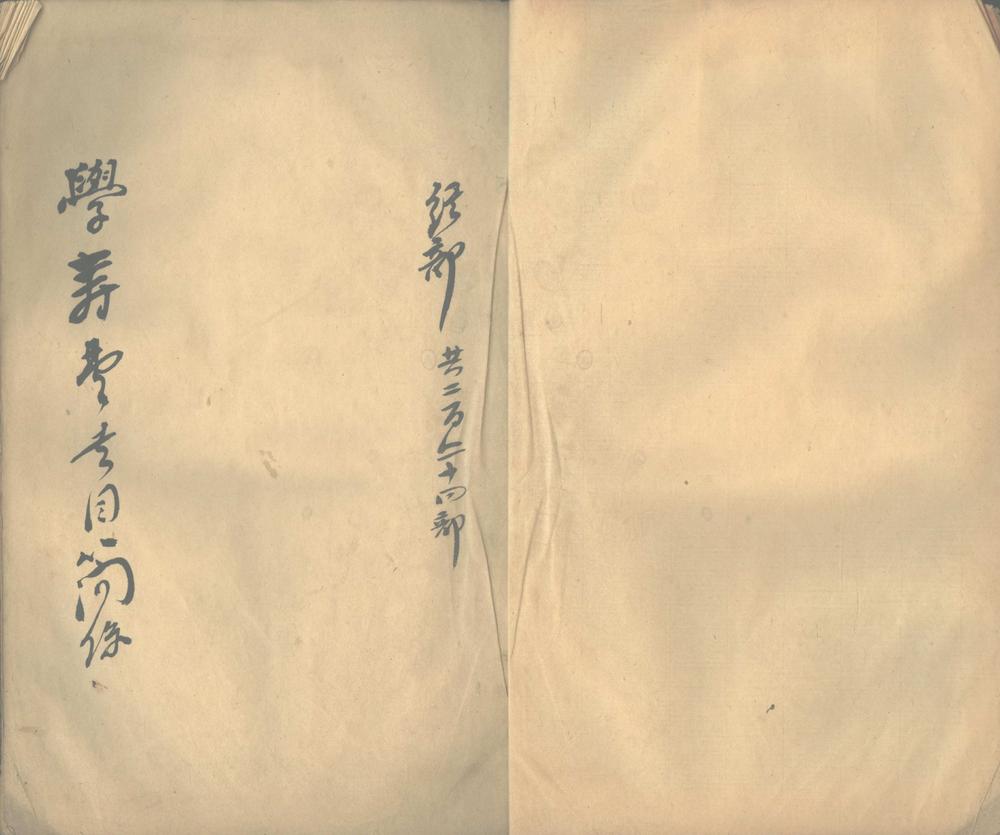 經部 共二百三十四部
學壽堂書目簡